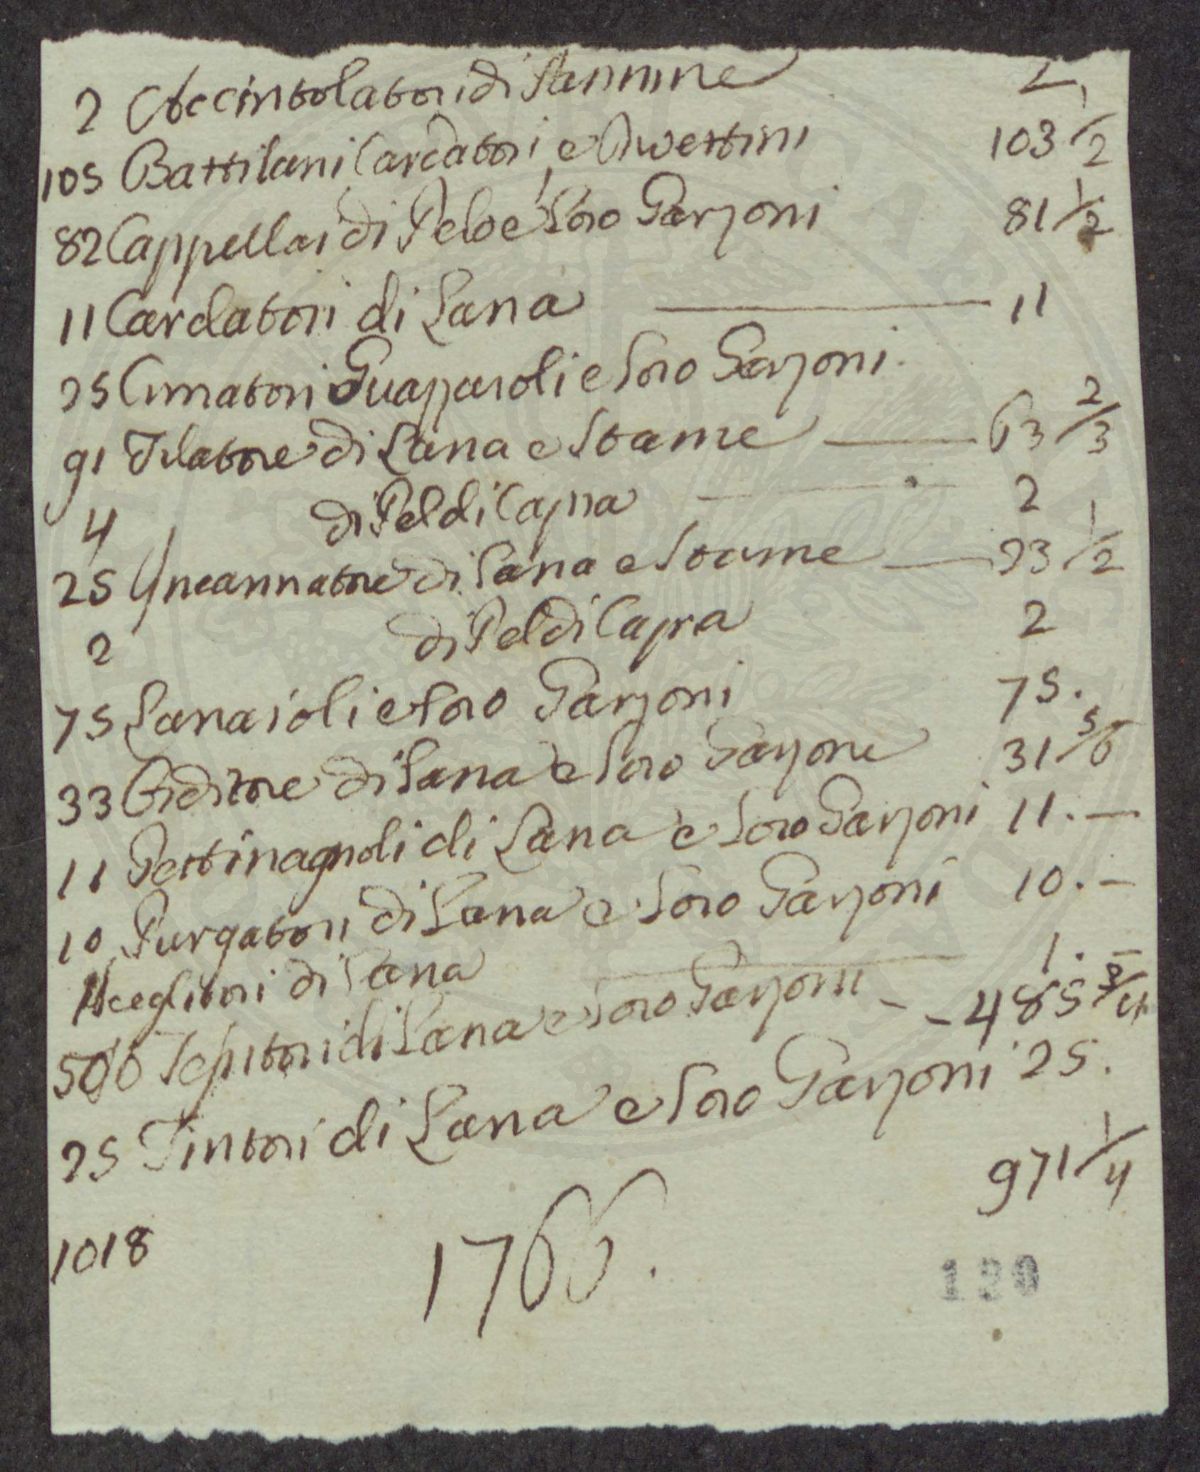 2 Accintolatori di stamine 2
105 Battilani Cardatori, e Avvettini 103 1/2
82 Cappellai di Pelo e loro Garzoni 81 1/2
11 Cardatori di Lana 11
25 Cimatori e loro Garzoni.
91 Filatore di Lana e Stame 63 2/3
4 di Pel di Capra 2
25 Incannatore di Lana e Stame 23 1/2
2 di Pel di Capra 2
75 Lanaioli e loro Garzoni 75.
33 Orditore di Lana e loro Garzone 31 5/6
11 Pettinagnoli di Lana e loro Garzoni 11. —
10 Purgatori di Lana e loro Garzoni 10. —
1 Sceglitori di Lana 1. —
506 Tessitori di Lana e loro Garzoni 485
25 Tintori di Lana e loro Garzoni 25.
971 1/4
1018 1766.
120